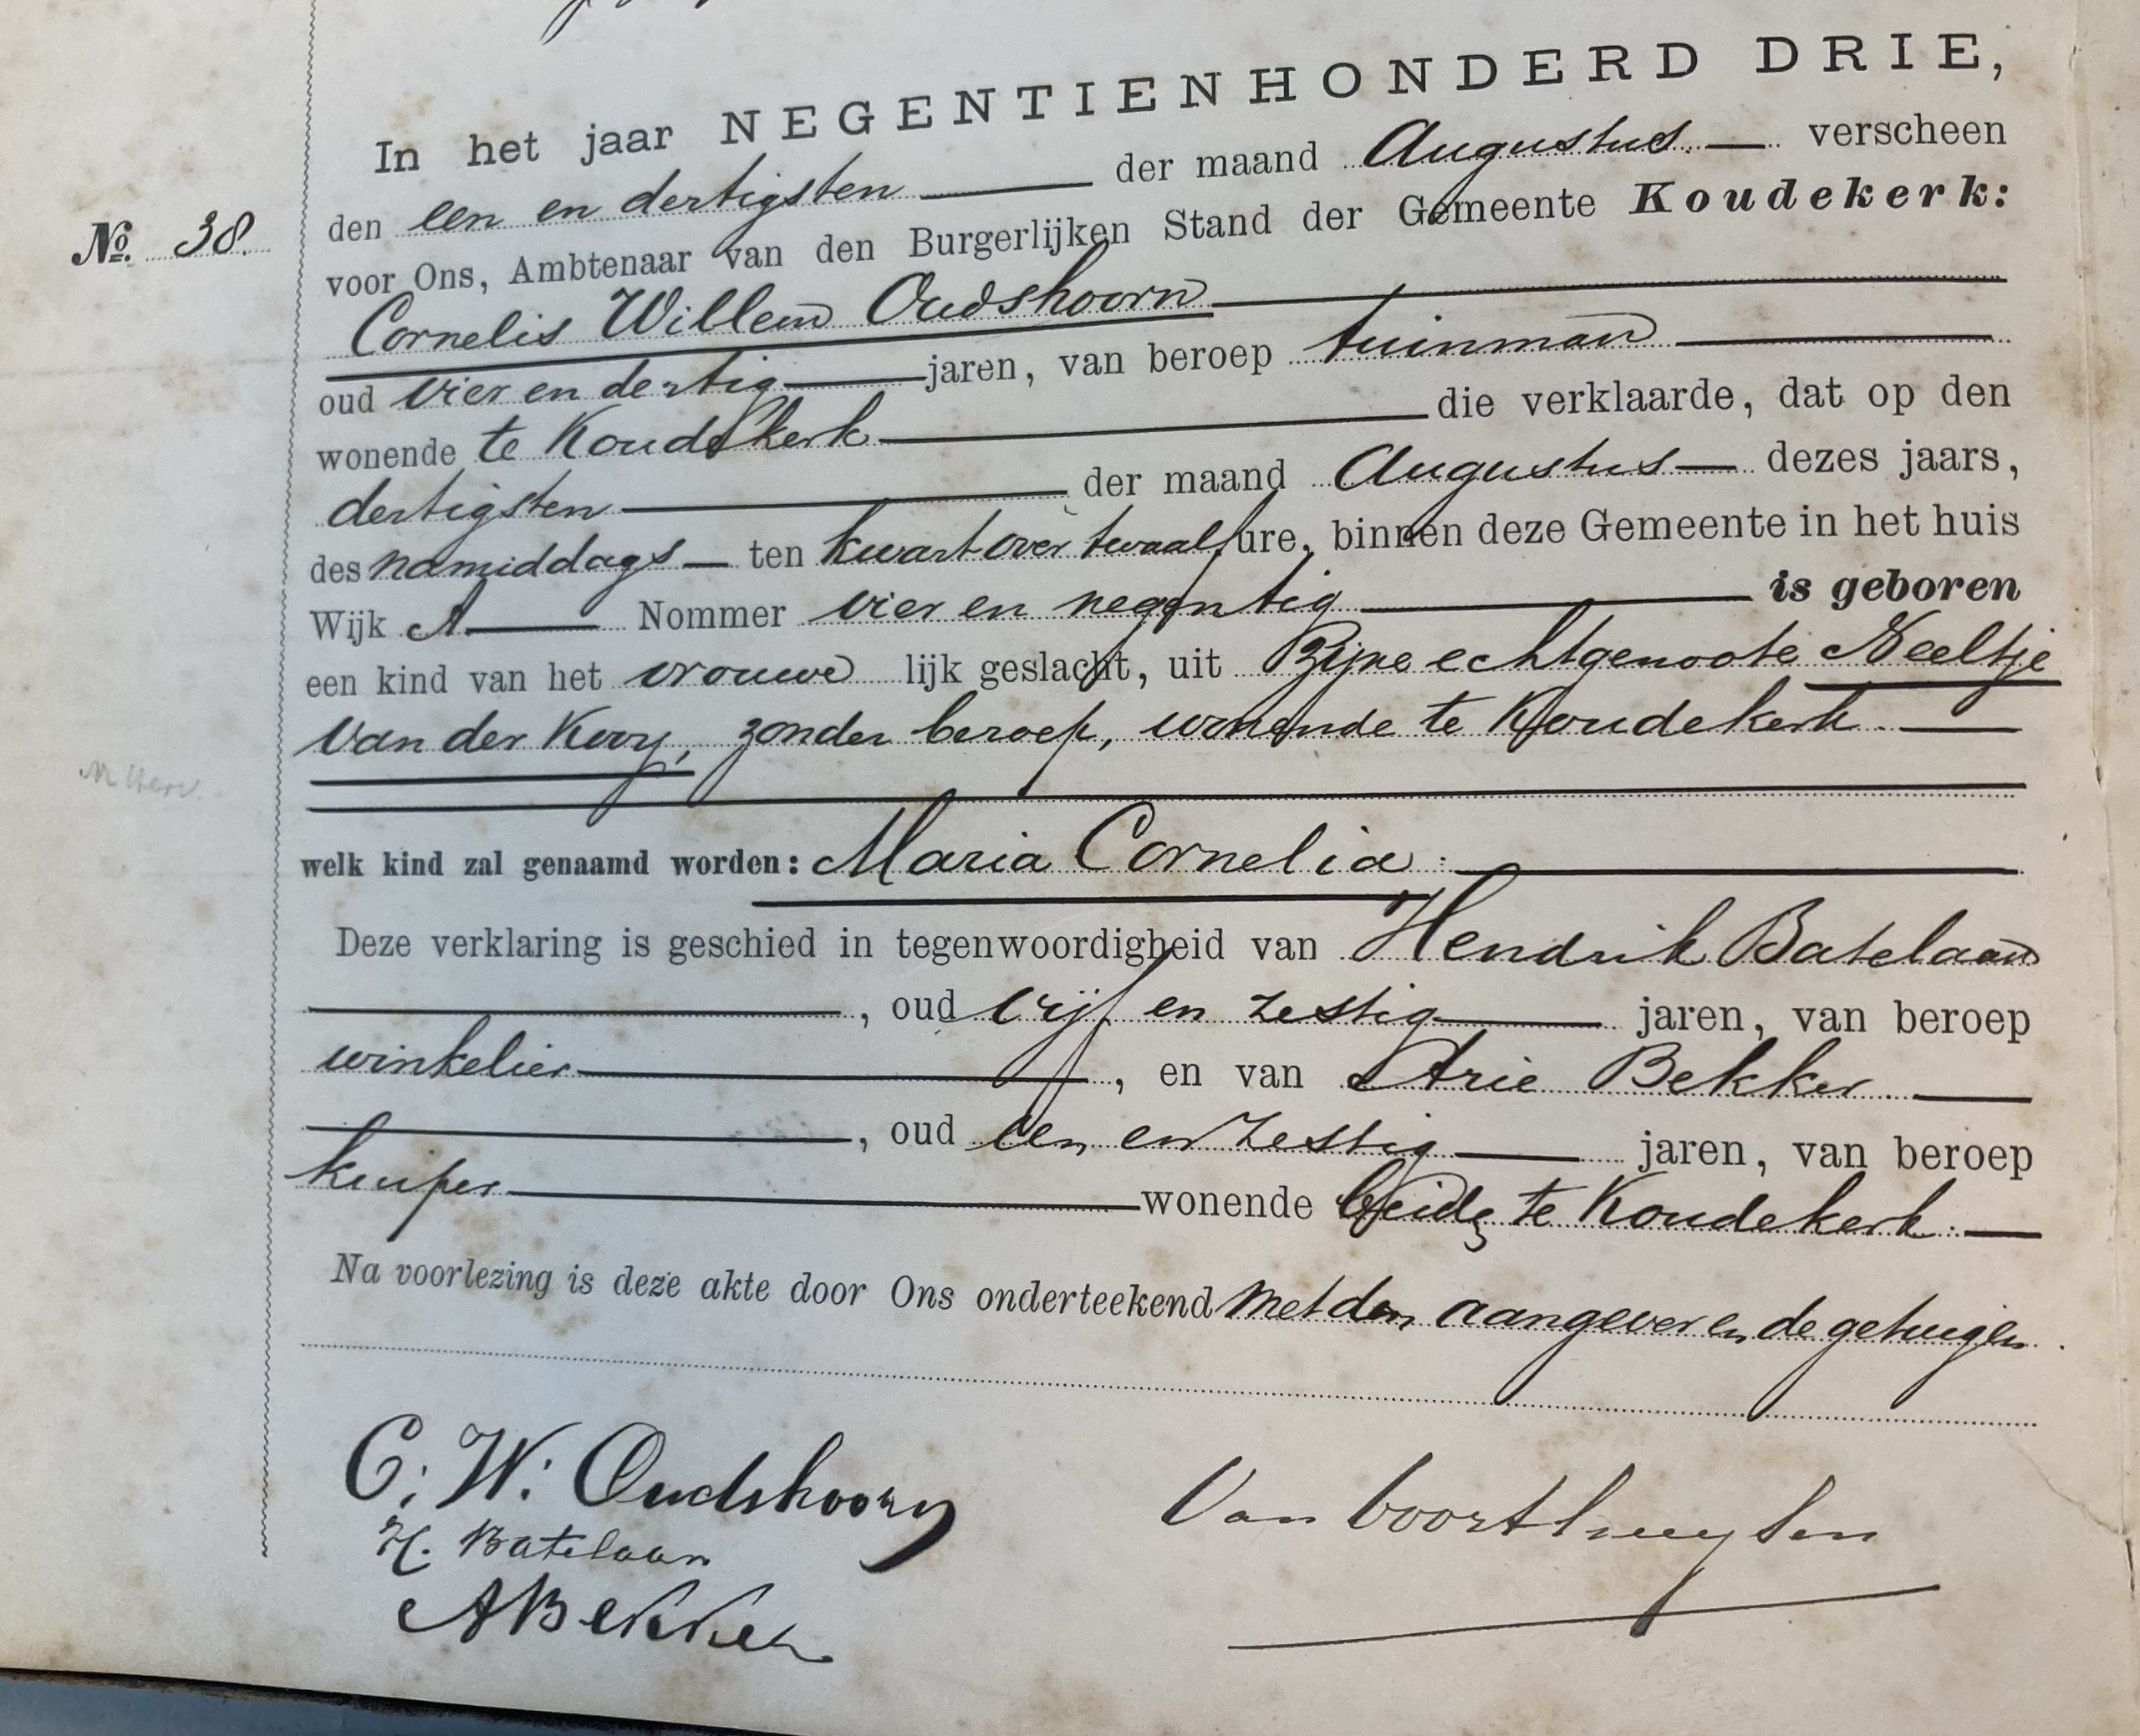 In het jaar NEGENTIENHONDERD DRIE,
den een en dertigsten der maand Augustus. verscheen
No. 38. voor Ons, Ambtenaar van den Burgerlijken Stand der Gemeente Koudekerk:
Cornelis Willem Oudshoorn
oud vier en dertig jaren, van beroep tuinman
wonende te Koudekerk die verklaarde, dat op den
dertigsten der maand Augustus dezes jaars,
des namiddags ten kwart over twaalf ure, binnen deze Gemeente in het huis
Wijk A. Nommer vier en negentig is geboren
een kind van het vrouwe lijk geslacht, uit Zijne echtgenoote Neeltje
van der Kooy, zonder beroep, wonende te Koudekerk.
welk kind zal genaamd worden: Maria Cornelia.
Deze verklaring is geschied in tegenwoordigheid van Hendrik Batelaan
, oud vijf en zestig jaren, van beroep
winkelier, en van Arie Bekker
, oud een en zestig jaren, van beroep
kuiper wonende beide te Koudekerk.
Na voorlezing is deze akte door Ons onderteekend met den aangever en de getuigen.
C. W. Oudshoorn
H. Batelaan
A Bekker
Van Voorthuysen